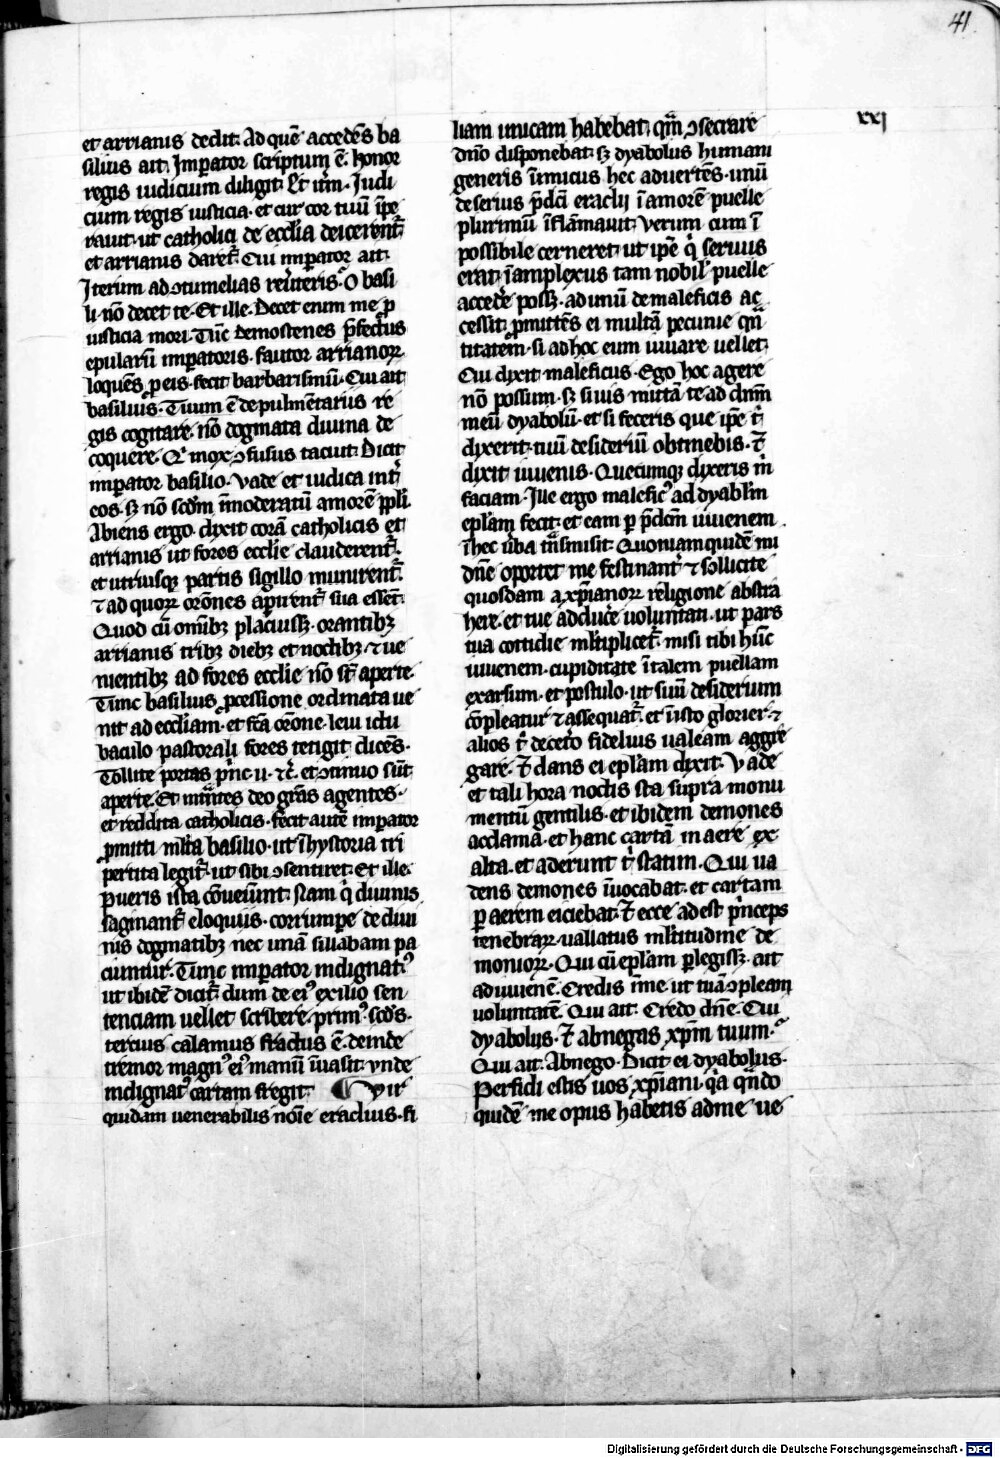 41
xxj
et arrianis dedit. Ad quē accedēs ba
silius ait. Imꝑator scriptum ē. honor
regis iudicium diligit. Et itm̄. Iudi
cium regis iusticia. et cur cor tuū īpe
rauit. ut catholici de eccl̄ia deicerent᷑
et arrianis daret᷑. Cui imperator ait.
Iterum ad ꝯtumelias reūteris. O basi
li nō decet te. Et ille. Decet enim me ꝓ
iusticia mori. Tūc demostenes p̄fectus
epularū imꝑatoris. fautor arrianoꝝ
loquēs ꝓ eis. fecit barbarismū. Cui ait
basilius. Tuum ē de pulmētariis re
gis cogitare. nō dogmata diuina de
coquere. Qͥ mox ꝯfusus tacuit. Dicit
imꝑator basilio. Vade et iudica int̄
eos. sꝫ nō scd̄m īmoderatū amorē pp̄li.
Abiens ergo. dixit corā catholicis et
arrianis ut fores ecclīe clauderent᷑.
et utriusqꝫ partis sigillo munirent᷑
⁊ ad quoꝝ orōnes aꝑirent᷑ sua essēt.
Quod cū om̄ibꝫ placuissꝫ. orantibꝫ
arrianis tribꝫ diebꝫ et noctibꝫ. ⁊ ue
nientibꝫ ad fores ecclīe nō sūt aperte.
Tunc basilius ꝓcessione ordinata ue
nit ad eccl̄iam. et fc̄a orōne. leui ictu
baculo pastorali fores tetigit dicēs.
Tollite portas p̄nc. u. ⁊c̄. et ꝯtinuo sūt
aperte. Et intrātes deo gr̄as agentes.
et reddita catholicis. fecit autē imperator
ꝓmitti ml̄ta basilio. ut ī hystoria tri
pertita legit᷑. ut sibi ꝯsentiret. Et ille.
Pueris ista cōueniūt. nam qͥ diuinis
saginant᷑ eloquiis. corrumpe de diui
nis dogmatibꝫ nec unā sillabam pa
ciuntur. Tunc imperator indignatꝰ
ut ibidē dicit᷑. dum de eiꝰ exilio sen
tenciam uellet scribere. primꝰ. scd̄s.
tercius calamus fractus ē. deinde
tremor magnꝰ eiꝰ manū īuasit. vnde
indignatꝰ cartam fregit. ¶ Vir
quidam uenerabilis noīe eraclius. fi
liam unicam habebat. qm̄ ꝯsecrare
dn̄o disponebat. sꝫ dyabolus humani
generis īimicus hec aduertēs. unū
de seruis p̄dc̄i eraclij ī amorē puelle
plurimū īflāmauit. Verum cum ī
possibile cerneret. ut ip̄e qͥ seruus
erat. ī amplexus tam nobilꝭ puelle
accedere possꝫ. ad unū de maleficis ac
cessit. ꝓmittēs ei multā pecunie qn̄
titatem. si ad hoc eum iuuare uellet.
Cui dixit maleficus. Ego hoc agere
nō possum. sꝫ si uis mittā te ad dn̄m
meū dyabolū. et si feceris que ip̄e tͥ
dixerit. tuū desideriū obtinebis. Et
dixit iuuenis. Quecumqꝫ dixeris mͥ
faciam. Ille ergo maleficꝰ ad dyabl̄m
epl̄am fecit. et eam ꝑ p̄dcm̄ iuuenem
ī hec ūba trāsmisit. Quoniam quidē mi
dn̄e oportet me festinant᷑ ⁊ sollicite
quosdam a xp̄ianoꝝ religione abstra
here. et tue adducere uoluntati. ut pars
tua cottidie ml̄tiplicet᷑. misi tibi hūc
iuuenem. cupiditate ī talem puellam
exarsum. et postulo. ut suū desiderium
cōpleatur ⁊ assequat᷑. et ī isto glorier. ⁊
alios tͥ decetero fidelius ualeam aggre
gare. Et dans ei epl̄am dixit. Vade
et tali hora noctis sta supra monu
mentū gentilis. et ibidem demones
acclama. et hanc cartā in aere ex
alta. et aderunt tͥ statim. Qui ua
dens demones īuocabat. et cartam
ꝑ aerem eiciebat. Et ecce adest p̄nceps
tenebraꝝ. uallatus ml̄titudine de
monioꝝ. Qui cū epl̄am ꝑlegissꝫ. ait
ad iuuenē. Credis ī me. ut tuā ꝯpleam
uoluntatē. Qui ait. Credo dn̄e. Cui
dyabolus. Et abnegas xp̄m tuum.
Qui ait. Abnego. Dicit ei dyabolus.
Perfidi estis uos xp̄iani. qͣ qn̄do
quidē me opus habetis ad me ue
Digitalisierung gefördert durch die Deutsche Forschungsgemeinschaft - DFG